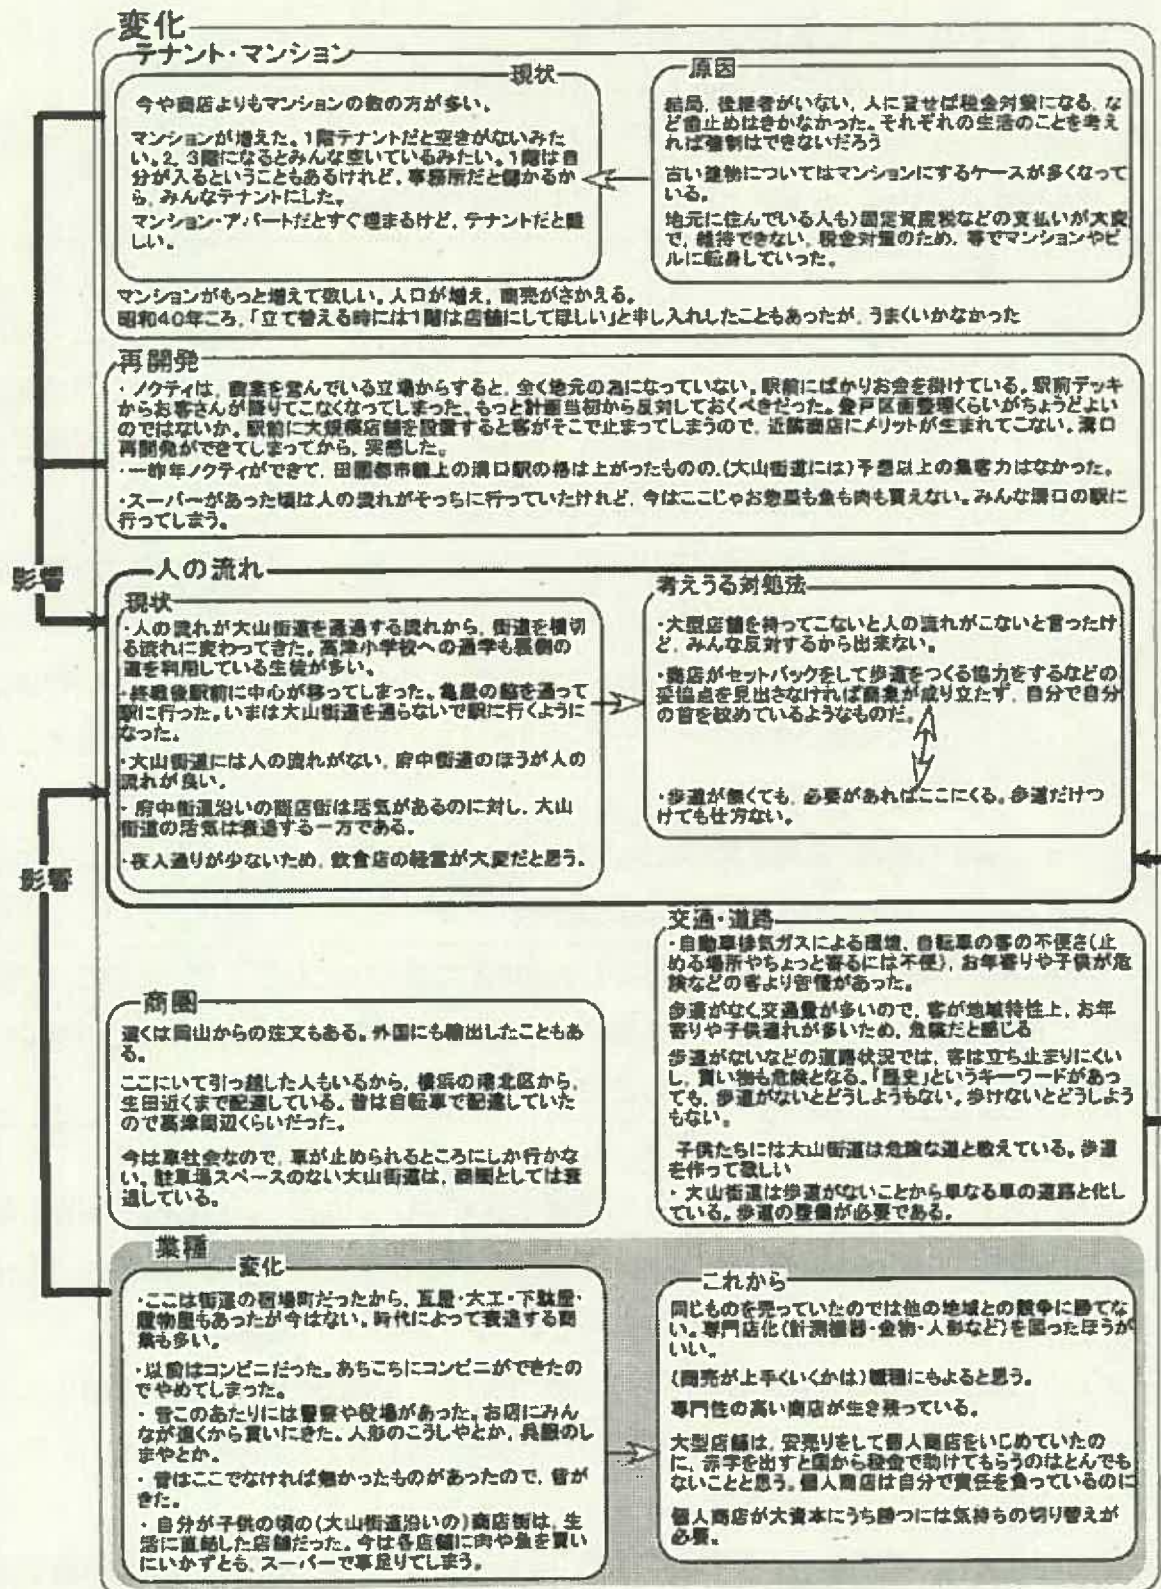 変化
テナント・マンション
現状
今や商店よりもマンションの数の方が多い。
マンションが増えた。1階テナントだと空きがないみた
い。2、3階になるとみんな空いているみたい。1階は自
分が入るということもあるけれど、事務所だと儲かるか
ら、みんなテナントにした。
マンション・アパートだとすぐ埋まるけど、テナントだと難
しい。
原因
結局、後継者がいない、人に貸せば税金対策になる、な
ど歯止めはきかなかった。それぞれの生活のことを考え
れば強制はできないだろう
古い建物についてはマンションにするケースが多くなって
いる。
地元に住んでいる人も)固定資産税などの支払いが大変
で、維持できない、税金対策のため、等でマンションやビ
ルに転身していった。
マンションがもっと増えて欲しい。人口が増え、商売がさかえる。
昭和40年ころ、「立て替える時には1階は店舗にしてほしい」と申し入れしたこともあったが、うまくいかなかった
再開発
・ノクティは、商業を営んでいる立場からすると、全く地元の為になっていない。駅前にばかりお金を掛けている。駅前デッキ
からお客さんが降りてこなくなってしまった、もっと計画当初から反対しておくべきだった。登戸区画整理くらいがちょうどよい
のではないか。駅前に大規模店舗を設置すると客がそこで止まってしまうので、近隣商店にメリットが生まれてこない。溝口
再開発ができてしまってから、実感した。
・一昨年ノクティができて、田園都市線上の溝口駅の格は上がったものの、(大山街道には)予想以上の集客力はなかった。
・スーパーがあった頃は人の流れがそっちに行っていたけれど、今はここじゃお惣菜も魚も肉も買えない。みんな溝口の駅に
行ってしまう。
影響
人の流れ
現状
・人の流れが大山街道を通過する流れから、街道を横切
る流れに変わってきた。高津小学校への通学も裏側の
道を利用している生徒が多い。
・終戦後駅前に中心が移ってしまった。亀屋の脇を通って
駅に行った。いまは大山街道を通らないで駅に行くように
なった。
・大山街道には人の流れがない、府中街道のほうが人の
流れが良い。
・府中街道沿いの商店街は活気があるのに対し、大山
街道の活気は衰退する一方である。
・夜人通りが少ないため、飲食店の経営が大変だと思う。
考えうる対処法
・大型店舗を持ってこないと人の流れがこないと言ったけ
ど、みんな反対するから出来ない。
・商店がセットバックをして歩道をつくる協力をするなどの
妥協点を見出さなければ商業が成り立たず、自分で自分
の首を絞めているようなものだ。
・歩道が無くても、必要があればここにくる。歩道だけつ
けても仕方ない。
影響
交通・道路
・自動車排気ガスによる環境、自転車の客の不便さ(止
める場所やちょっと寄るには不便)、お年寄りや子供が危
険などの客より苦情があった。
歩道がなく交通量が多いので、客が地域特性上、お年
寄りや子供連れが多いため、危険だと感じる
歩道がないなどの道路状況では、客は立ち止まりにくい
し、買い物も危険となる。「歴史」というキーワードがあっ
ても、歩道がないとどうしようもない。歩けないとどうしよう
もない。
子供たちには大山街道は危険な道と教えている。歩道
を作って欲しい
・大山街道は歩道がないことから単なる車の道路と化し
ている。歩道の整備が必要である。
商圏
遠くは岡山からの注文もある。外国にも輸出したこともあ
る。
ここにいて引っ越した人もいるから、横浜の港北区から、
生田近くまで配達している。昔は自転車で配達していた
ので高津周辺くらいだった。
今は車社会なので、車が止められるところにしか行かな
い。駐車場スペースのない大山街道は、商圏としては衰
退している。
業種
変化
・ここは街道の宿場町だったから、瓦屋・大工・下駄屋・
履物屋もあったが今はない。時代によって衰退する商
業も多い。
・以前はコンビニだった。あちこちにコンビニができたの
でやめてしまった。
・昔このあたりには警察や役場があった。お店にみん
なが遠くから買いにきた。人形のこうしやとか、呉服のし
まやとか。
・昔はここでなければ無かったものがあったので、皆が
きた。
・自分が子供の頃の(大山街道沿いの)商店街は、生
活に直結した店舗だった。今は各店舗に肉や魚を買い
にいかずとも、スーパーで事足りてしまう。
これから
同じものを売っていたのでは他の地域との競争に勝てな
い。専門店化(計測機器・金物・人形など)を図ったほうが
いい。
(商売が上手くいくかは)職種にもよると思う。
専門性の高い商店が生き残っている。
大型店舗は、安売りをして個人商店をいじめていたの
に、赤字を出すと国から税金で助けてもらうのはとんでも
ないことと思う。個人商店は自分で責任を負っているのに
個人商店が大資本にうち勝つには気持ちの切り替えが
必要。